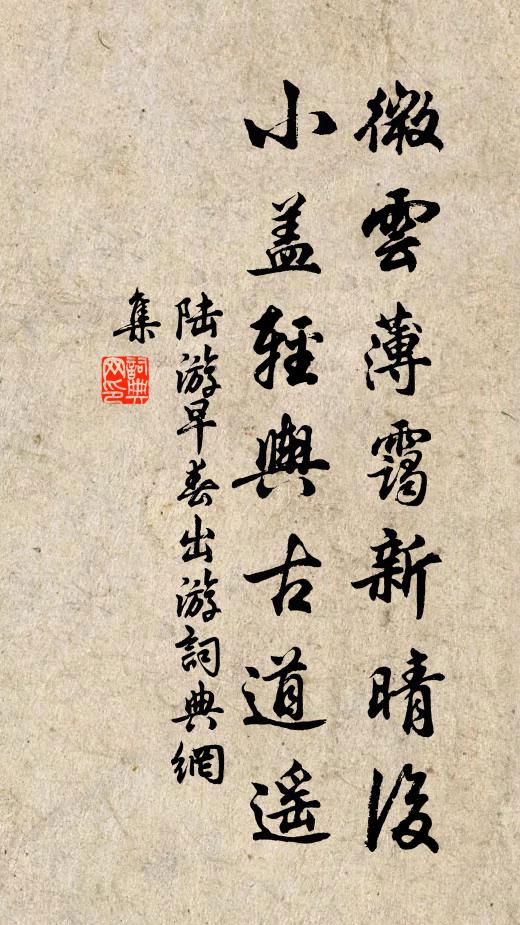 微雲薄靄新晴後
小盖輕輿古道遥
陆游早春出游詞典網
集
詞典网印